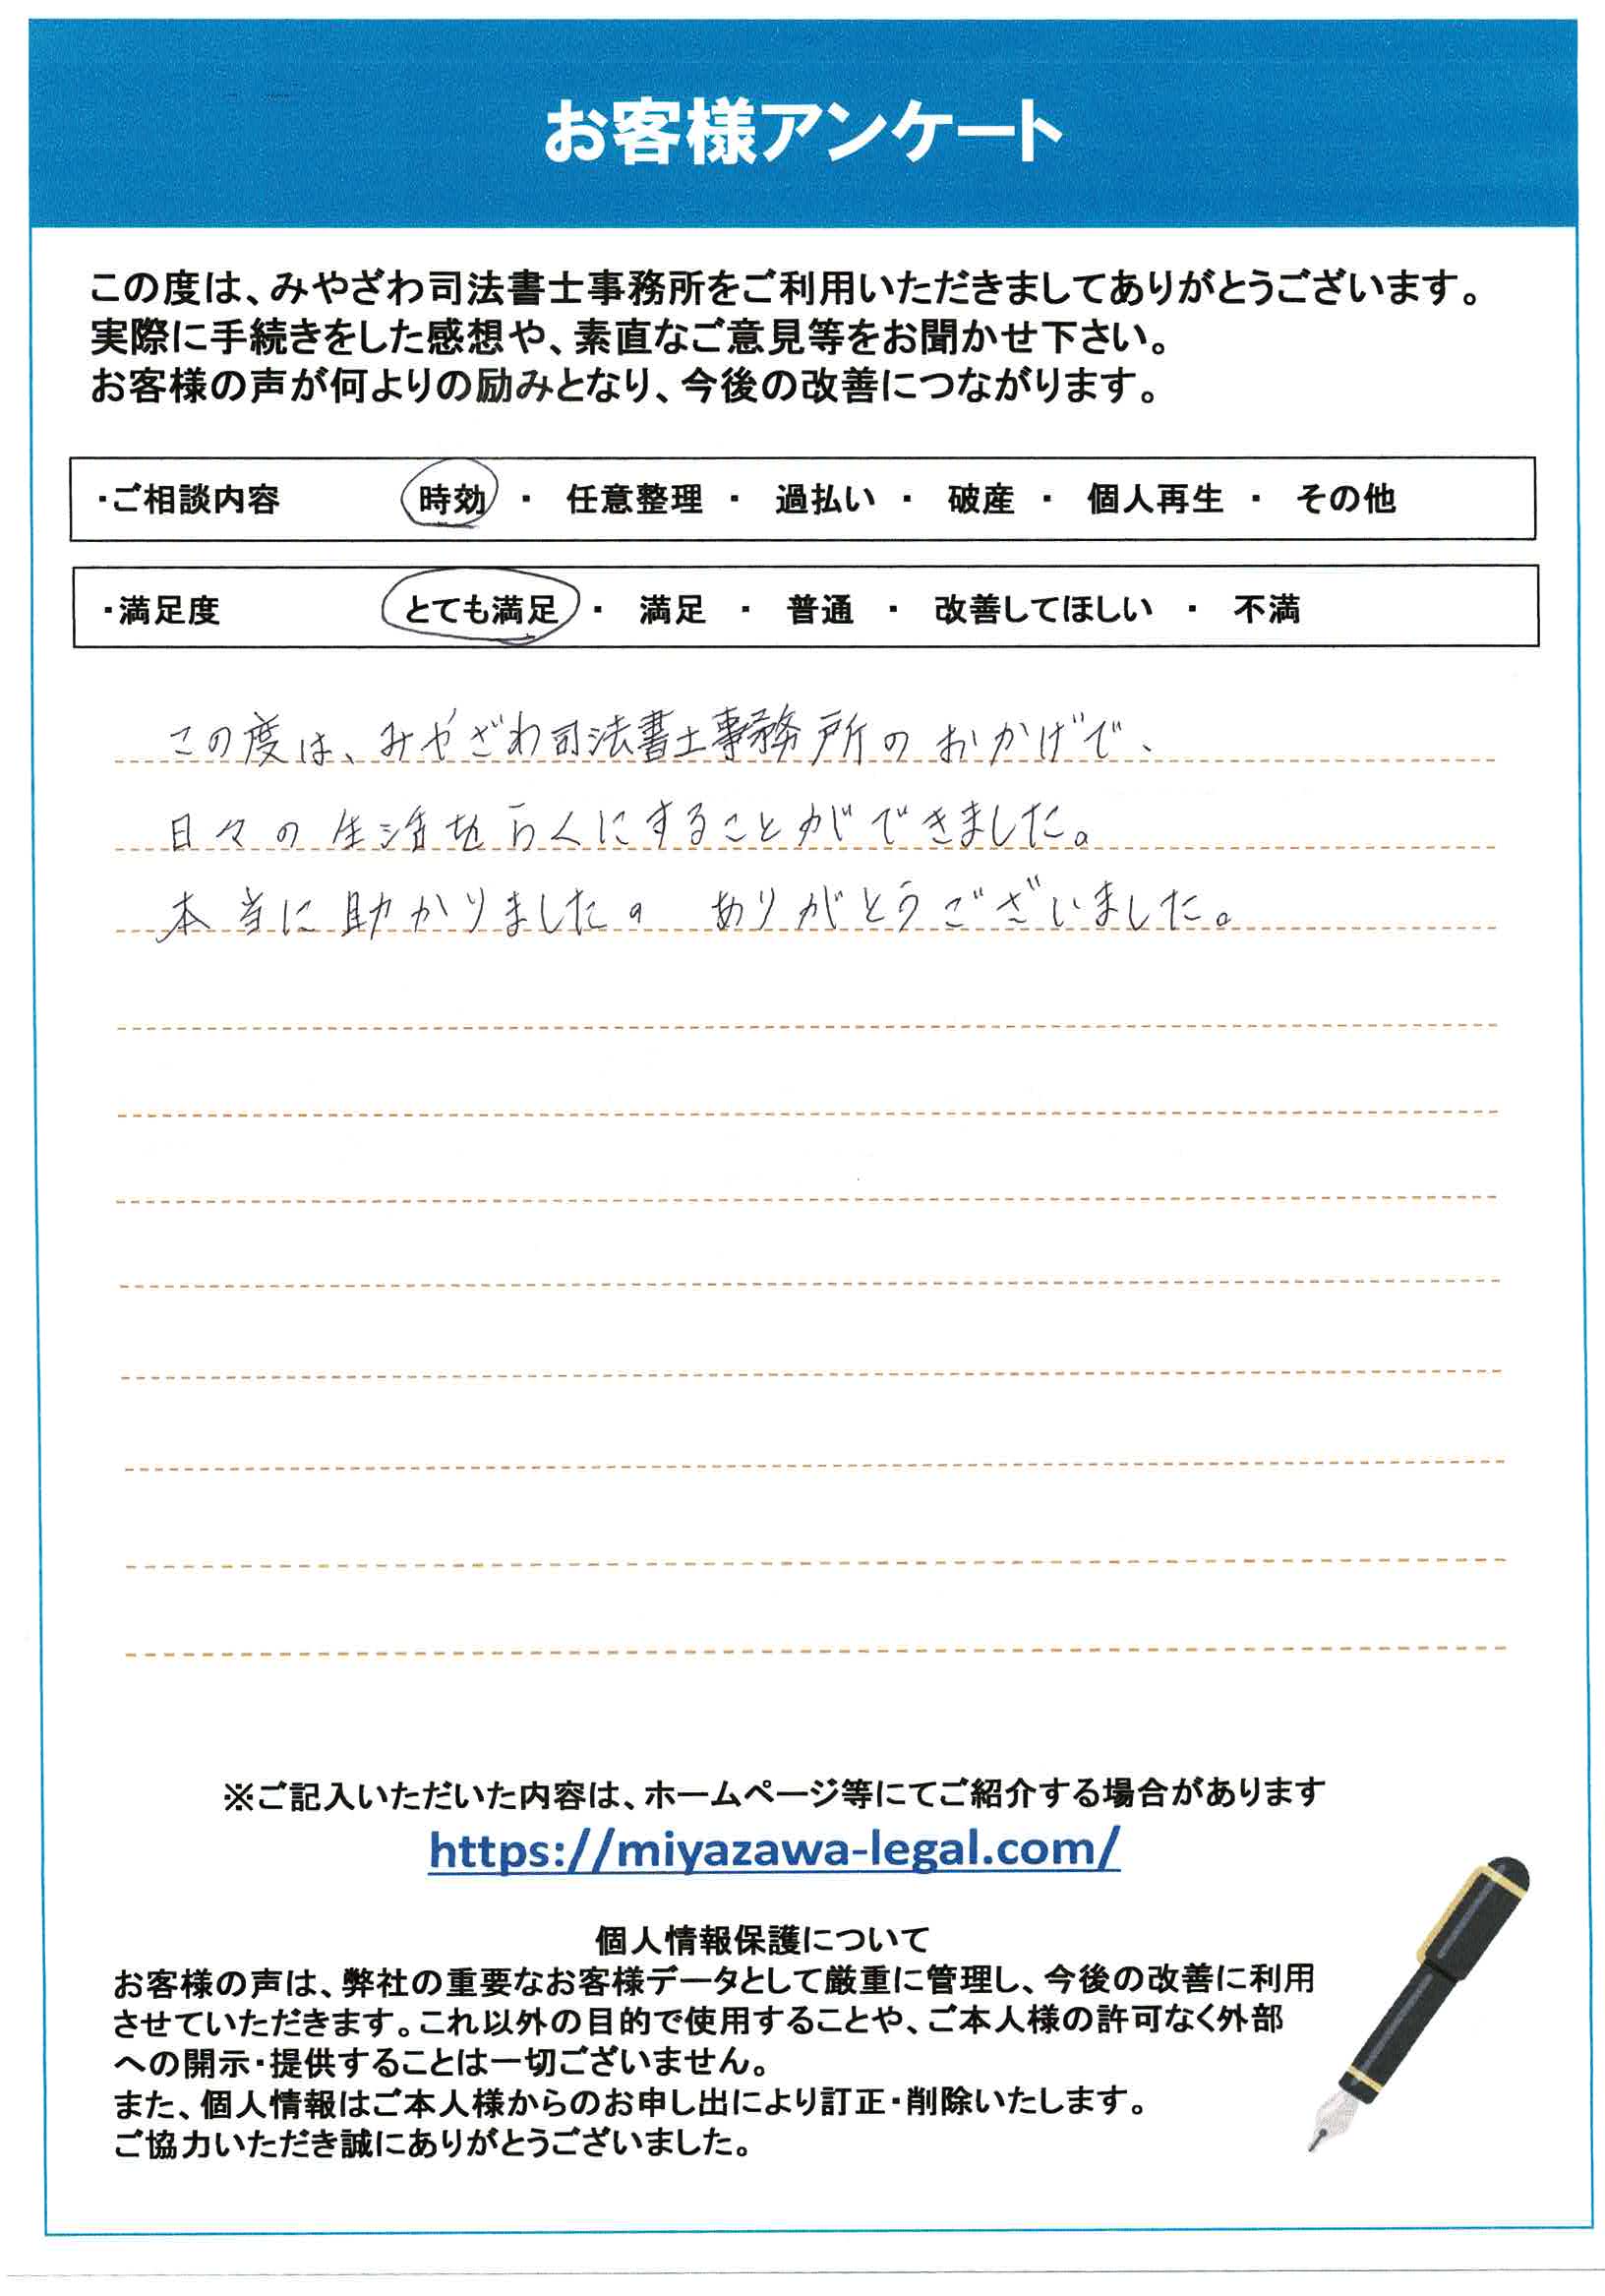 お客様アンケート
この度は、みやざわ司法書士事務所をご利用いただきましてありがとうございます。
実際に手続きをした感想や、素直なご意見等をお聞かせ下さい。
お客様の声が何よりの励みとなり、今後の改善につながります。
・ご相談内容 時効 ・ 任意整理 ・ 過払い ・ 破産 ・ 個人再生 ・ その他
・満足度 とても満足 ・ 満足 ・ 普通 ・ 改善してほしい ・ 不満
この度は、みやざわ司法書士事務所のおかげで、
日々の生活をらくにすることができました。
本当に助かりました。ありがとうございました。
※ご記入いただいた内容は、ホームページ等にてご紹介する場合があります
https://miyazawa-legal.com/
個人情報保護について
お客様の声は、弊社の重要なお客様データとして厳重に管理し、今後の改善に利用
させていただきます。これ以外の目的で使用することや、ご本人様の許可なく外部
への開示・提供することは一切ございません。
また、個人情報はご本人様からのお申し出により訂正・削除いたします。
ご協力いただき誠にありがとうございました。